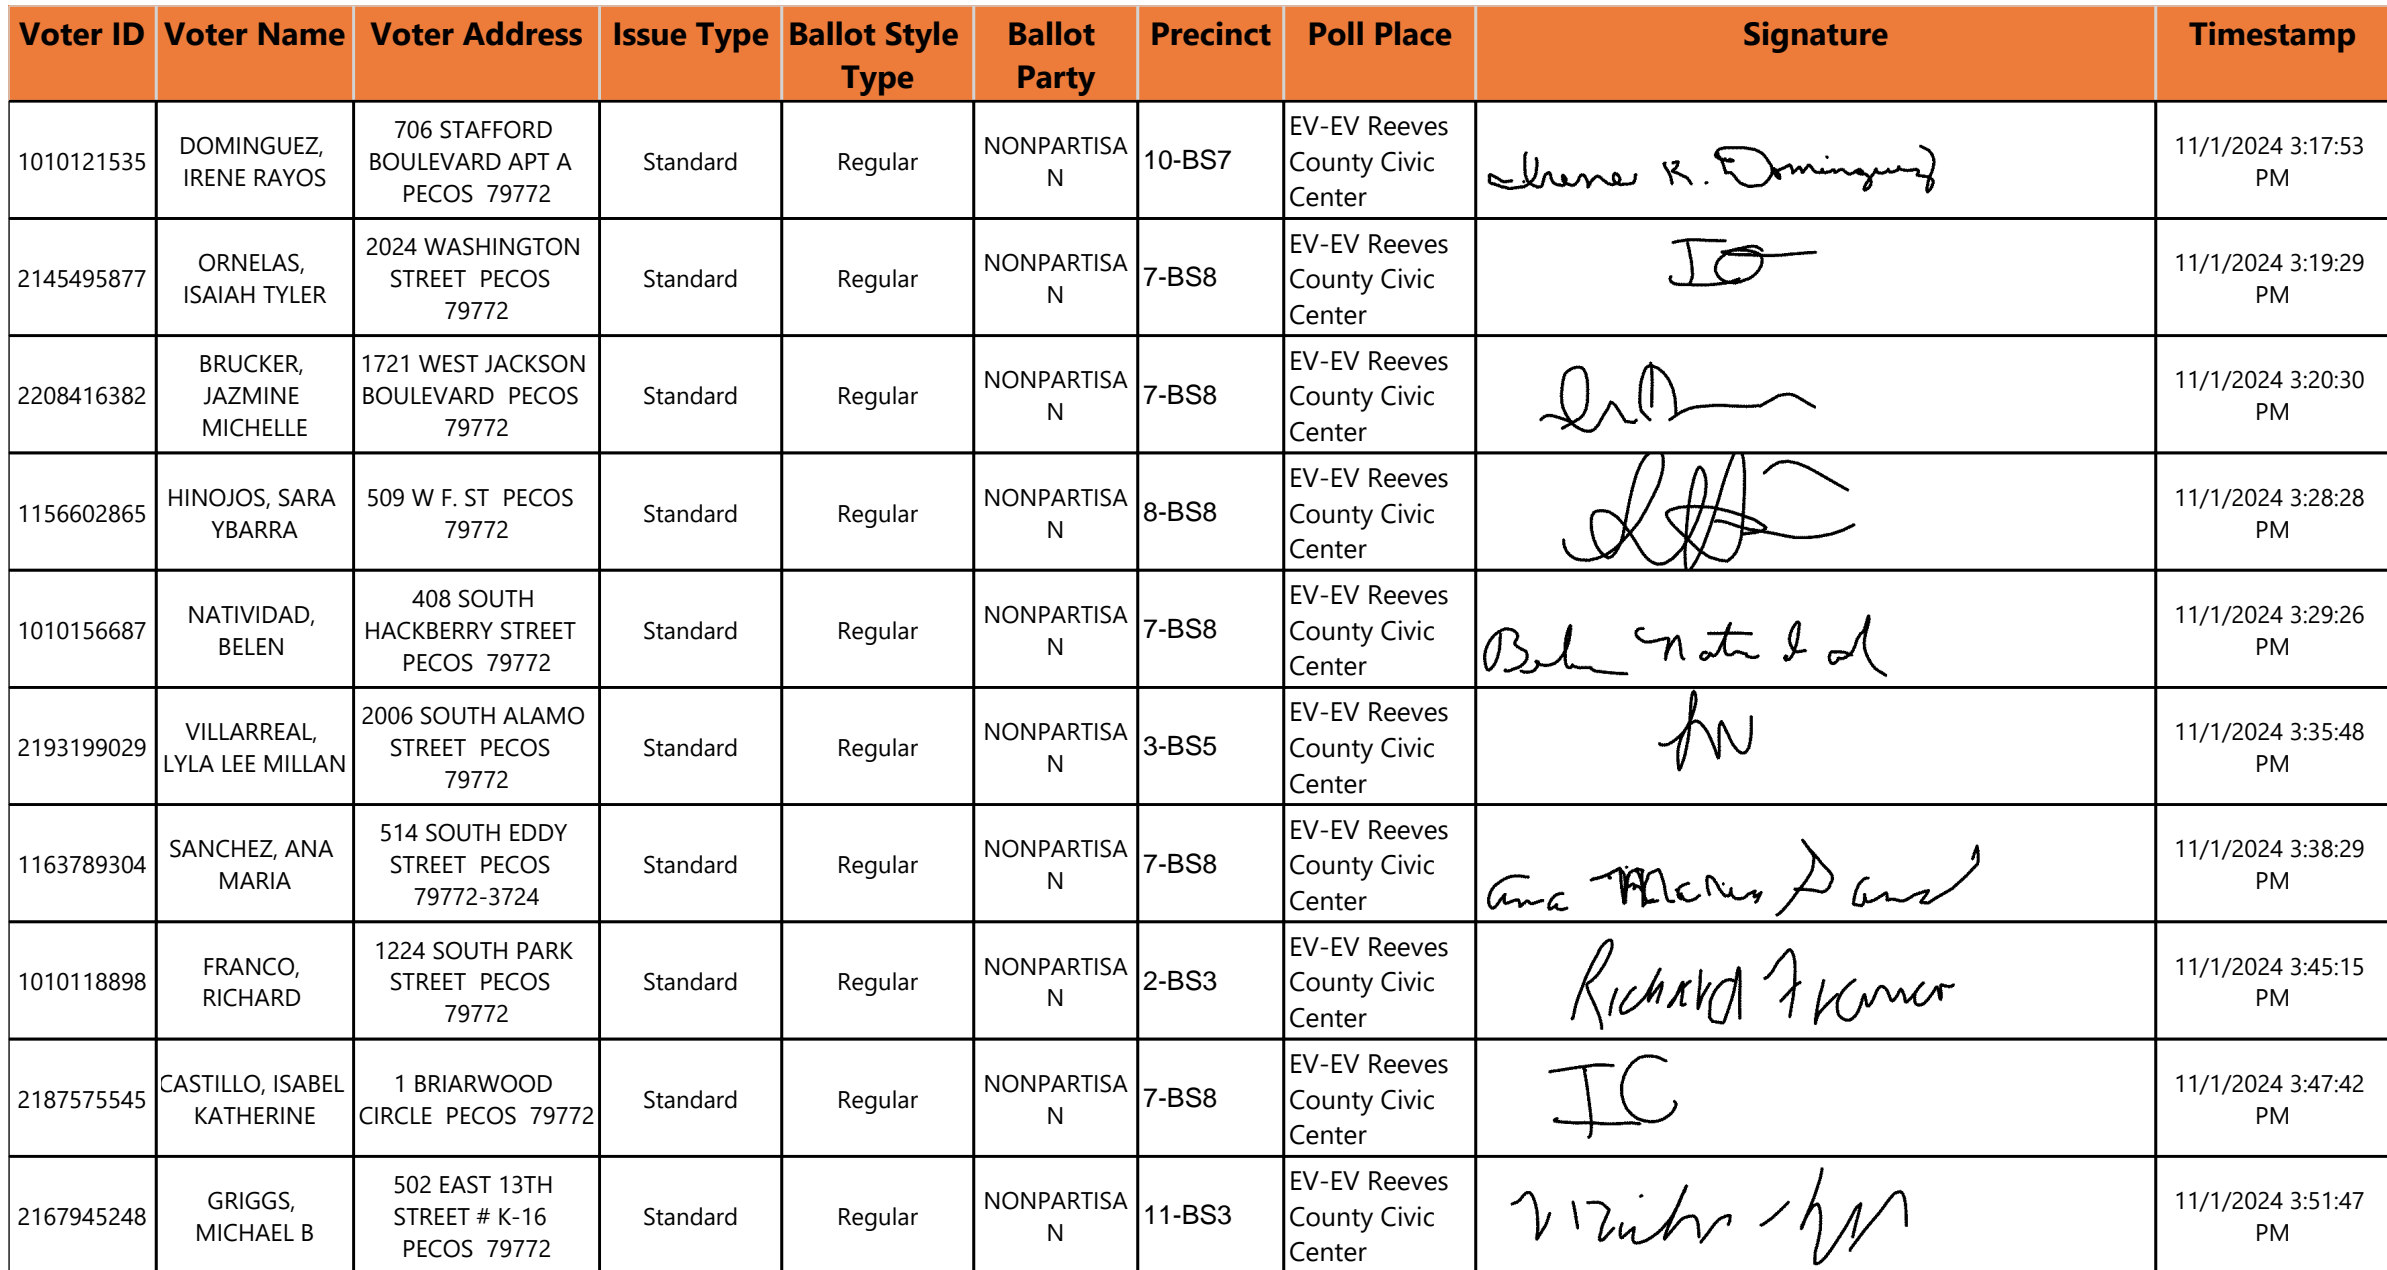 Voter ID Voter Name Voter Address Issue Type Ballot Style Type Ballot Party Precinct Poll Place Signature Timestamp
1010121535 DOMINGUEZ, IRENE RAYOS 706 STAFFORD BOULEVARD APT A PECOS 79772 Standard Regular NONPARTISAN 10-BS7 EV-EV Reeves County Civic Center Irene R. Dominguez 11/1/2024 3:17:53 PM
2145495877 ORNELAS, ISAIAH TYLER 2024 WASHINGTON STREET PECOS 79772 Standard Regular NONPARTISAN 7-BS8 EV-EV Reeves County Civic Center IO 11/1/2024 3:19:29 PM
2208416382 BRUCKER, JAZMINE MICHELLE 1721 WEST JACKSON BOULEVARD PECOS 79772 Standard Regular NONPARTISAN 7-BS8 EV-EV Reeves County Civic Center 11/1/2024 3:20:30 PM
1156602865 HINOJOS, SARA YBARRA 509 W F. ST PECOS 79772 Standard Regular NONPARTISAN 8-BS8 EV-EV Reeves County Civic Center 11/1/2024 3:28:28 PM
1010156687 NATIVIDAD, BELEN 408 SOUTH HACKBERRY STREET PECOS 79772 Standard Regular NONPARTISAN 7-BS8 EV-EV Reeves County Civic Center 11/1/2024 3:29:26 PM
2193199029 VILLARREAL, LYLA LEE MILLAN 2006 SOUTH ALAMO STREET PECOS 79772 Standard Regular NONPARTISAN 3-BS5 EV-EV Reeves County Civic Center 11/1/2024 3:35:48 PM
1163789304 SANCHEZ, ANA MARIA 514 SOUTH EDDY STREET PECOS 79772-3724 Standard Regular NONPARTISAN 7-BS8 EV-EV Reeves County Civic Center Ana Maria 11/1/2024 3:38:29 PM
1010118898 FRANCO, RICHARD 1224 SOUTH PARK STREET PECOS 79772 Standard Regular NONPARTISAN 2-BS3 EV-EV Reeves County Civic Center Richard Franco 11/1/2024 3:45:15 PM
2187575545 CASTILLO, ISABEL KATHERINE 1 BRIARWOOD CIRCLE PECOS 79772 Standard Regular NONPARTISAN 7-BS8 EV-EV Reeves County Civic Center IC 11/1/2024 3:47:42 PM
2167945248 GRIGGS, MICHAEL B 502 EAST 13TH STREET # K-16 PECOS 79772 Standard Regular NONPARTISAN 11-BS3 EV-EV Reeves County Civic Center 11/1/2024 3:51:47 PM